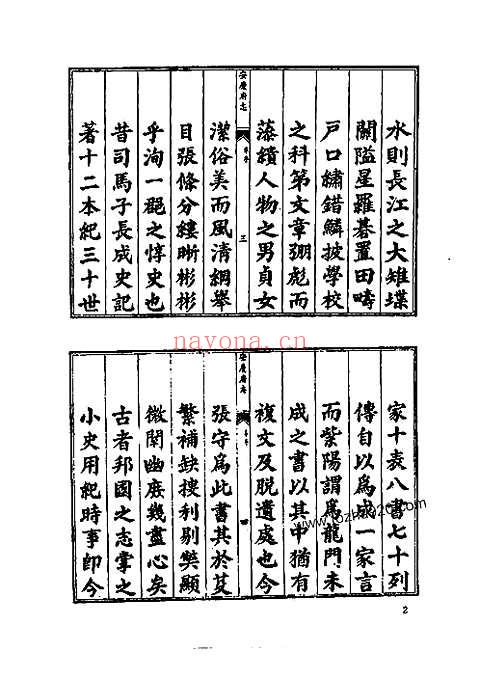 水則長江之大雉堞
關隘星羅碁置田疇
戶口繡錯鱗披學校
之科第文章彪而
藻繢人物之男貞女
安慶府志
三
潔俗美而風清綱舉
目張條分縷晰彬彬
乎洵一郡之惇史也
昔司馬子長成史記
著十二本紀三十世
家十表八書七十列
傳自以為成一家言
而紫陽謂為龍門未
成之書以其中猶有
複文及脫遺處也今
安慶府志
四
張守為此書其於芟
繁補缺搜利剔獘顯
微闡幽庶幾盡心矣
古者邦國之志掌之
小史用紀時事即今
nayona.cn
2